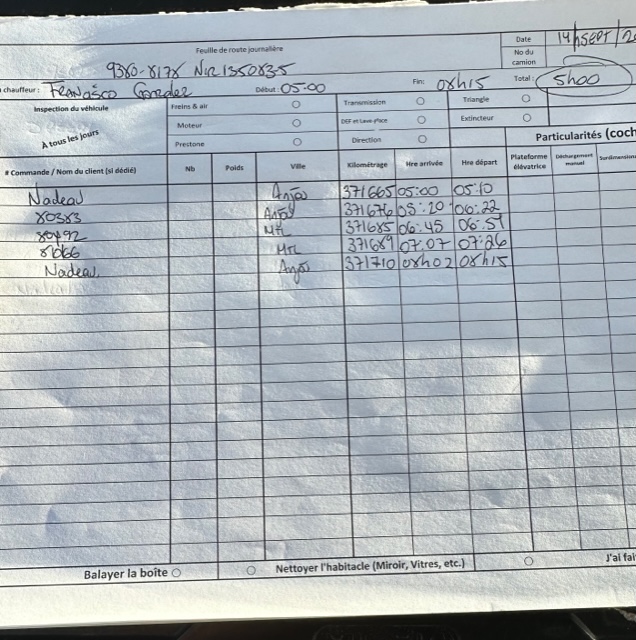 Feuille de route journalière
Date 14 SEPT/20
No du camion
9380-8178 NIR1350835
chauffeur : Francisco Début : 05:00 Fin: 08h15 Total : 5h00
Inspection du véhicule
A tous les jours
Freins & air Transmission Triangle
Moteur DEF et Lave glace Extincteur
Prestone Direction
Particularités (coch
# Commande / Nom du client (si dédié) Nb Poids Ville Kilométrage Hre arrivée Hre départ Plateforme élévatrice Déchargement manuel Surdimension
Nadeau Anjou 371665 05:00 05:10
80383 Anjou 371676 05:20 06:22
80492 Mtl 371685 06:45 06:51
81066 Mtl 371689 07:07 07:26
Nadeau Anjou 371710 08h02 08h15
Balayer la boîte Nettoyer l'habitacle (Miroir, Vitres, etc.) J'ai fai